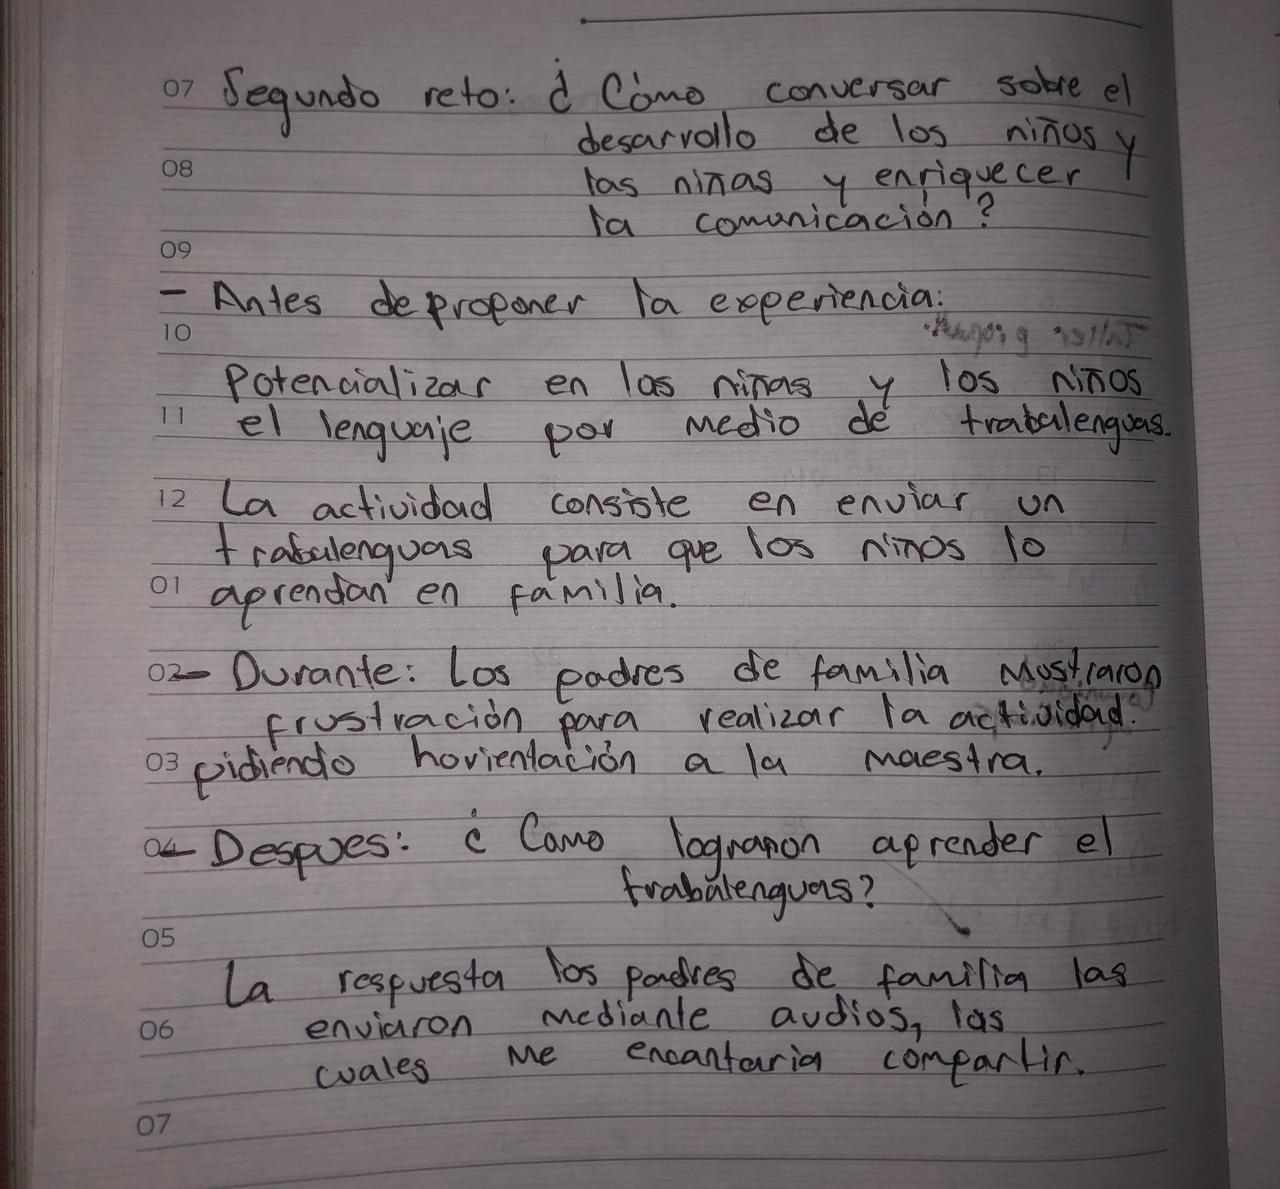 07 Segundo reto: ¿ Cómo conversar sobre el
desarrollo de los niños y
08
las niñas y enriquecer
la comunicación?
09
- Antes de proponer la experiencia:
10
Potencializar en las niñas y los niños
11 el lenguaje por medio de trabalenguas.
12 La actividad consiste en enviar un
trabalenguas para que los niños lo
01 aprendan en familia.
02 - Durante: Los padres de familia mostraron
frustración para realizar la actividad.
03 pidiendo horientación a la maestra.
04 - Despues: ¿ Como lograron aprender el
trabalenguas?
05
La respuesta los padres de familia las
06 enviaron mediante audios, las
cuales me encantaria compartir.
07